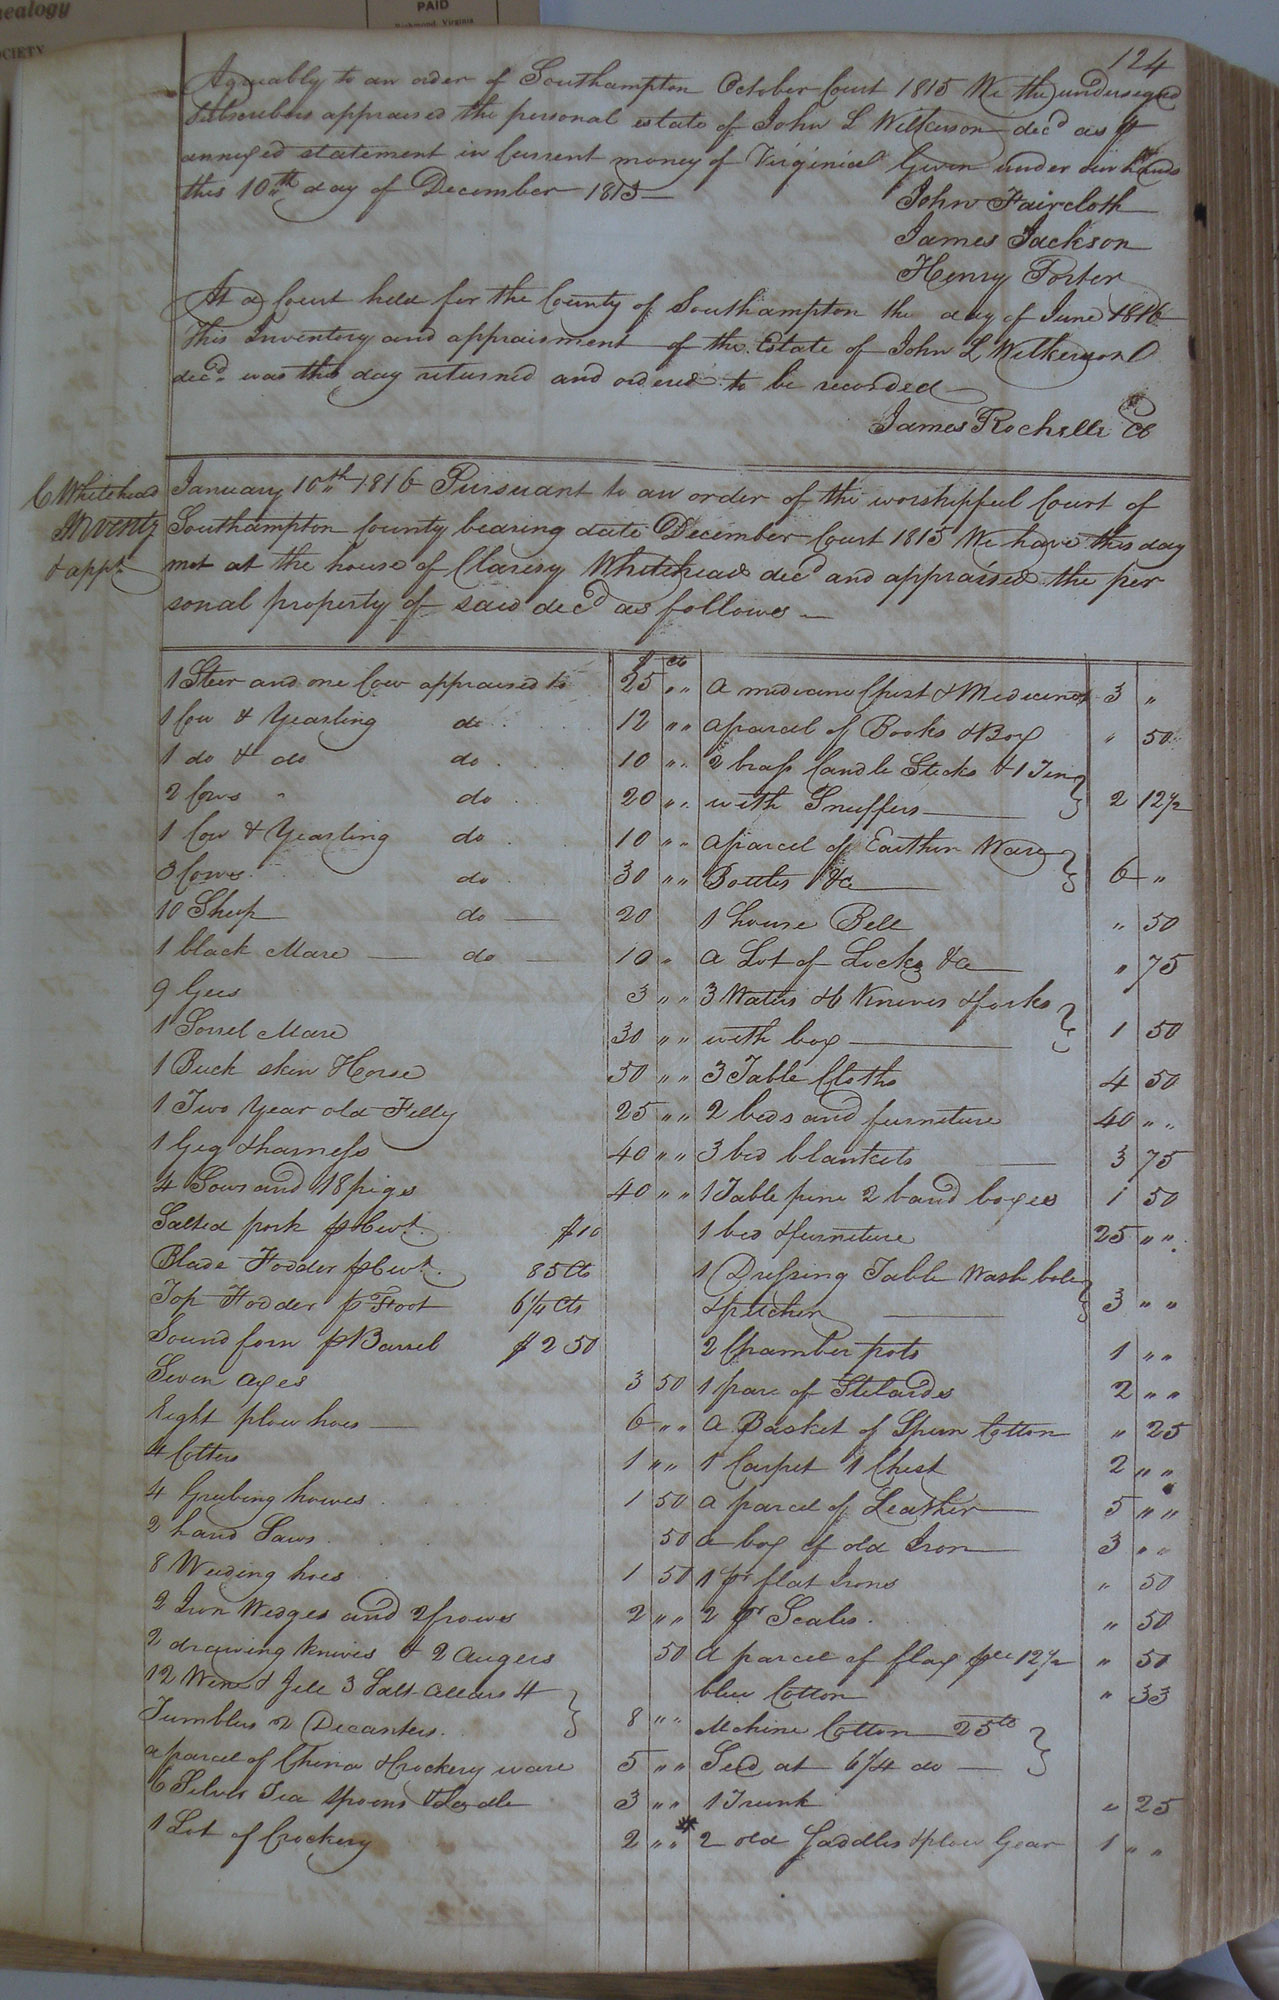 nealogy
OCIETY
PAID
Richmond, Virginia
124
Agreeably to an order of Southampton October Court 1815 We the undersigned
Subscribers appraised the personal estate of John L Wilkerson decd as p
annexed statement in Current money of Virginia Given under our hands
this 10th day of December 1815
John Faircloth
James Jackson
Henry Porter
At a Court held for the County of Southampton the day of June 1816
This Inventory and appraisment of the Estate of John L Wilkerson
decd. was this day returned and ordered to be recorded
James Rochelle Cc
C Whitehead
Inventy
& appt.
January 10th 1816 Pursuant to an order of the worshipful Court of
Southampton County bearing date December Court 1815 We have this day
met at the house of Claresy Whitehead decd and appraised the per
sonal property of said decd as follows
$ cts
1 Steer and one Cow appraised to 25 ""
1 Cow & Yearling do 12 ""
1 do & do do 10 ""
2 Cows " do 20 ""
1 Cow & Yearling do 10 ""
3 Cows do 30 ""
10 Sheep do 20
1 black Mare do 10 "
9 Gees 3 ""
1 Sorrel Mare 30 ""
1 Buck skin Horse 50 ""
1 Two Year old Filly 25 ""
1 Gig & harness 40 ""
4 Sows and 18 piges 40 ""
Salted pork p Cwt. $10
Blade Fodder p Cwt. 85 Cts
Top Fodder p Foot 6 1/4 Cts
Sound Corn p Barrel $2 50
Seven axes 3 50
Eight plow hoes 6 ""
4 Cotters 1 ""
4 Grubing howes 1 50
2 hand Saws 50
8 Weeding hoes 1 50
2 Iron Wedges and 2 frowes 2 ""
2 drawing knives & 2 Augers 50
12 Wine & Jell 3 Salt Cellars 4
Tumblers 2 Decanters 8 ""
a parcel of China & Crockery ware 5 ""
6 Silver Tea Spoons & Ladle 3 ""
1 Lot of Crockery 2 ""
a medicine Chest & Medicines 3 "
a parcel of Books & Box " 50
2 brass Candle Sticks & 1 Ting
with Snuffers 2 12 1/2
a parcel of Earthen Ware
Bottles &c 6 "
1 house Bell " 50
a Lot of Locks &c " 75
3 Waters & 6 Knives & forks
with box 1 50
3 Table Cloths 4 50
2 beds and furniture 40 ""
3 bed blankets 3 75
1 Table pine 2 band boxes 1 50
1 bed & furniture 25 ""
1 Dressing Table Wash bole
& pitcher 3 ""
2 Chamber pots 1 ""
1 pare of Stilards 2 ""
a Basket of Spun Cotton " 25
1 Carpet 1 Chest 2 ""
a parcel of Leather 5 ""
a box of old Iron 3 ""
1 pr flat Irons " 50
2 pr Scales " 50
a parcel of flax 12 1/2 " 50
blue Cotton " 33
Mchine Cotton 25 cts
Seed at 6 1/4 do
1 Trunk " 25
* 2 old Saddles & plow Gear 1 ""